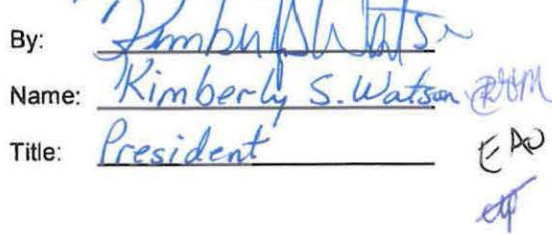 By: Kimberly S. Watson
Name: Kimberly S. Watson
Title: President
EAO